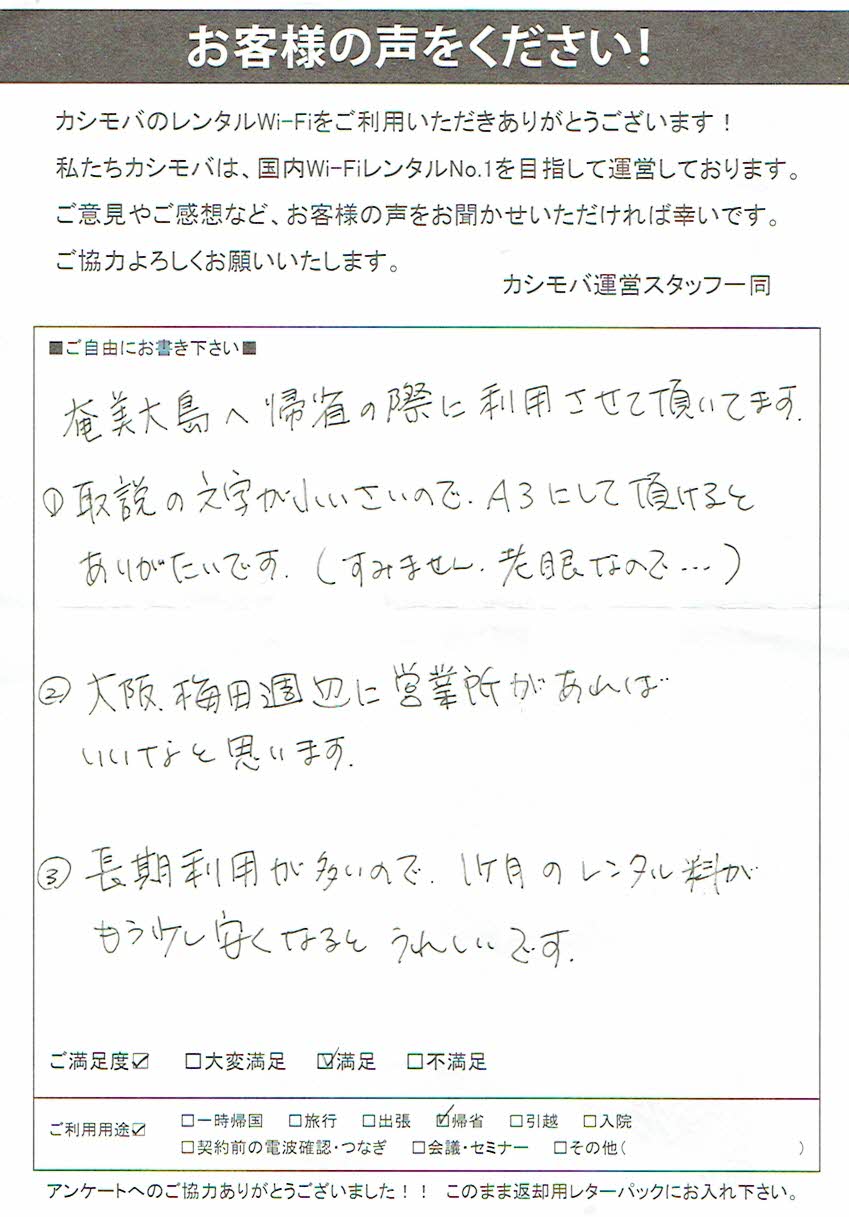 お客様の声をください!
カシモバのレンタルWi-Fiをご利用いただきありがとうございます！
私たちカシモバは、国内Wi-FiレンタルNo.1を目指して運営しております。
ご意見やご感想など、お客様の声をお聞かせいただければ幸いです。
ご協力よろしくお願いいたします。
カシモバ運営スタッフ一同
■ご自由にお書き下さい■
奄美大島へ帰省の際に利用させて頂いてます.
① 取説の文字が小いさいので. A3にして頂けると
ありがたいです. (すみません. 老眼なので…)
② 大阪.梅田週辺に営業所があれば
いいなと思います.
③ 長期利用が多いので. 1ケ月のレンタル料が
もう少し安くなるとうれしいです.
ご満足度☑ □大変満足 ☑満足 □不満足
ご利用用途☑ □一時帰国 □旅行 □出張 ☑帰省 □引越 □入院
□契約前の電波確認・つなぎ □会議・セミナー □その他( )
アンケートへのご協力ありがとうございました！！ このまま返却用レターパックにお入れ下さい。